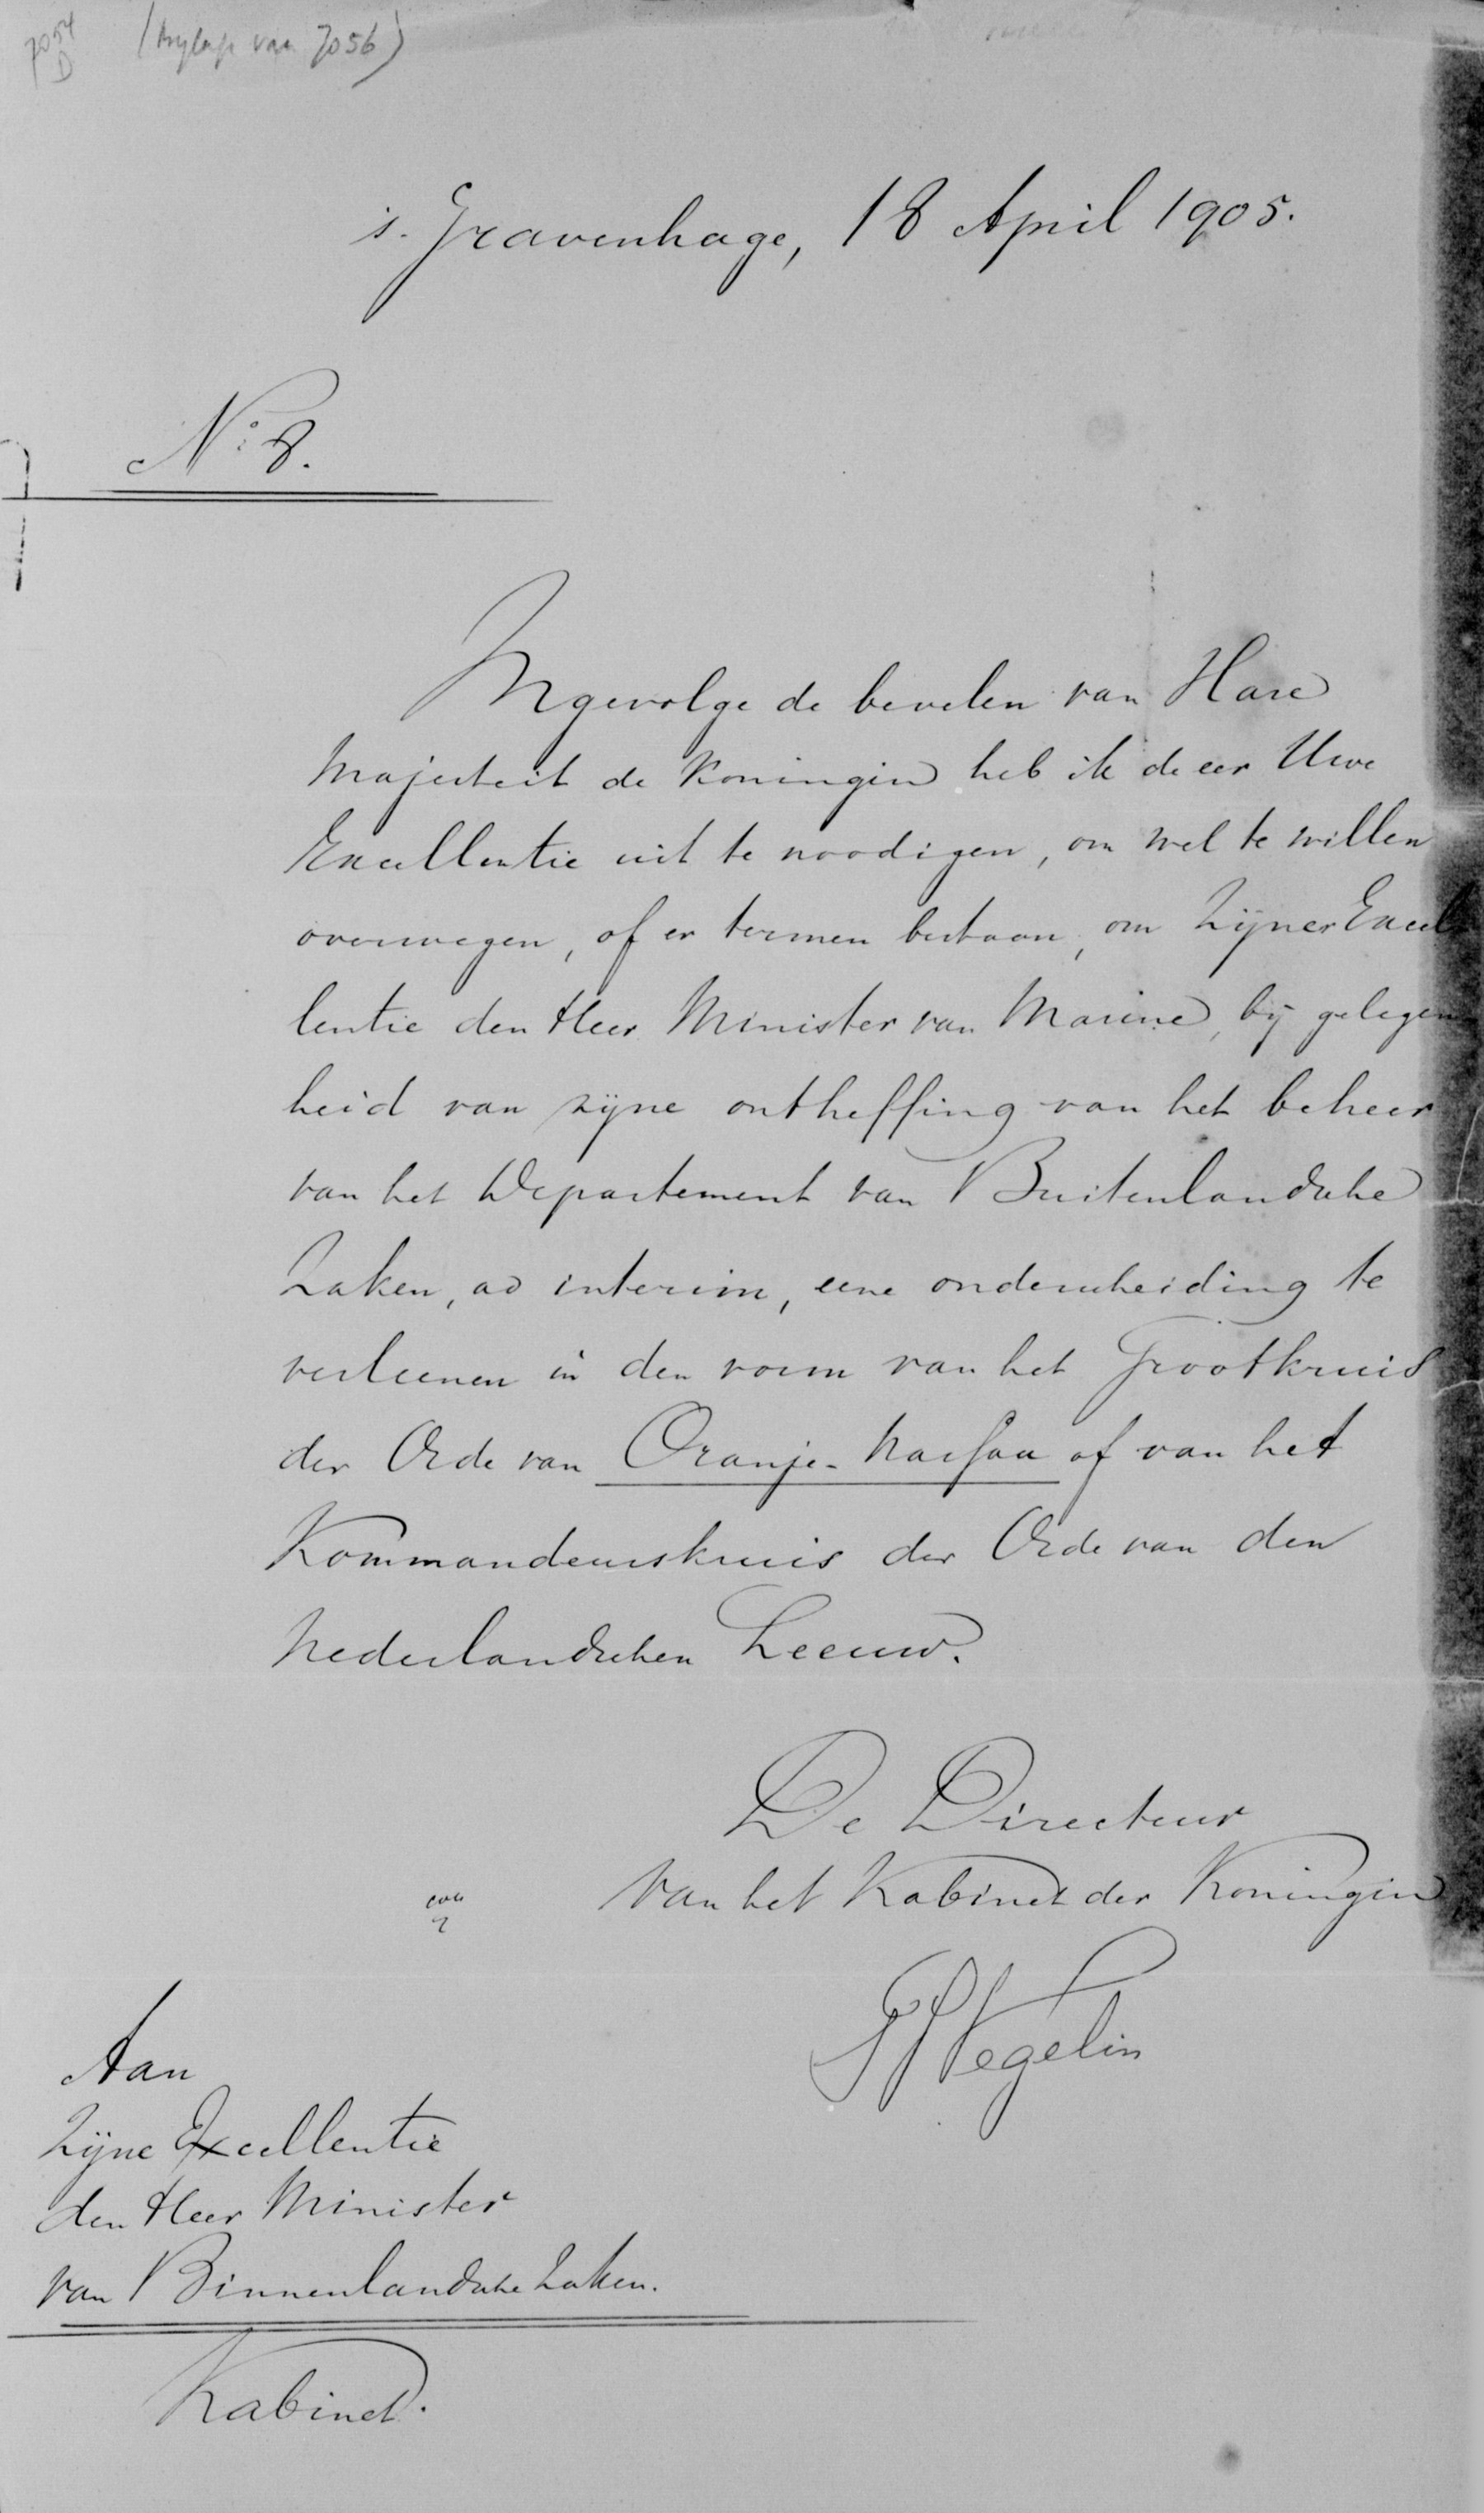 7054
D
(bylage van 7056)
's. Gravenhage, 18 April 1905.
No. 8.
Ingevolge de bevelen van Hare
Majesteit de Koningin heb ik de eer Uwe
Excellentie uit te noodigen, om wel te willen
overwegen, of er termen bestaan, om Zijner Excel
lentie den Heer Minister van Marine, bij gelegen
heid van zijne ontheffing van het beheer
van het Departement van Buitenlandsche
Zaken, ad interim, eene onderscheiding te
verleenen in den vorm van het Grootkruis
der Orde van Oranje-Nassau of van het
Kommandeurskruis der Orde van den
Nederlandschen Leeuw.
De Directeur
van het Kabinet der Koningin
Vegelin
Aan
Zijne Excellentie
den Heer Minister
van Binnenlandsche Zaken.
Kabinet.